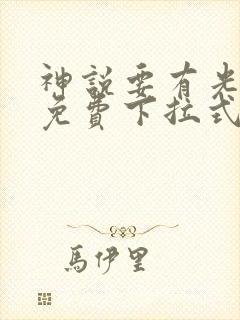 神說要有光
免費下拉式
馬伊里